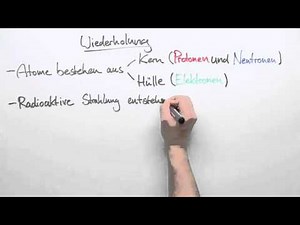 Wiederholung
Kern (Protonen und Neutronen)
- Atome bestehen aus
Hülle (Elektronen)
- Radioaktive Strahlung entsteh